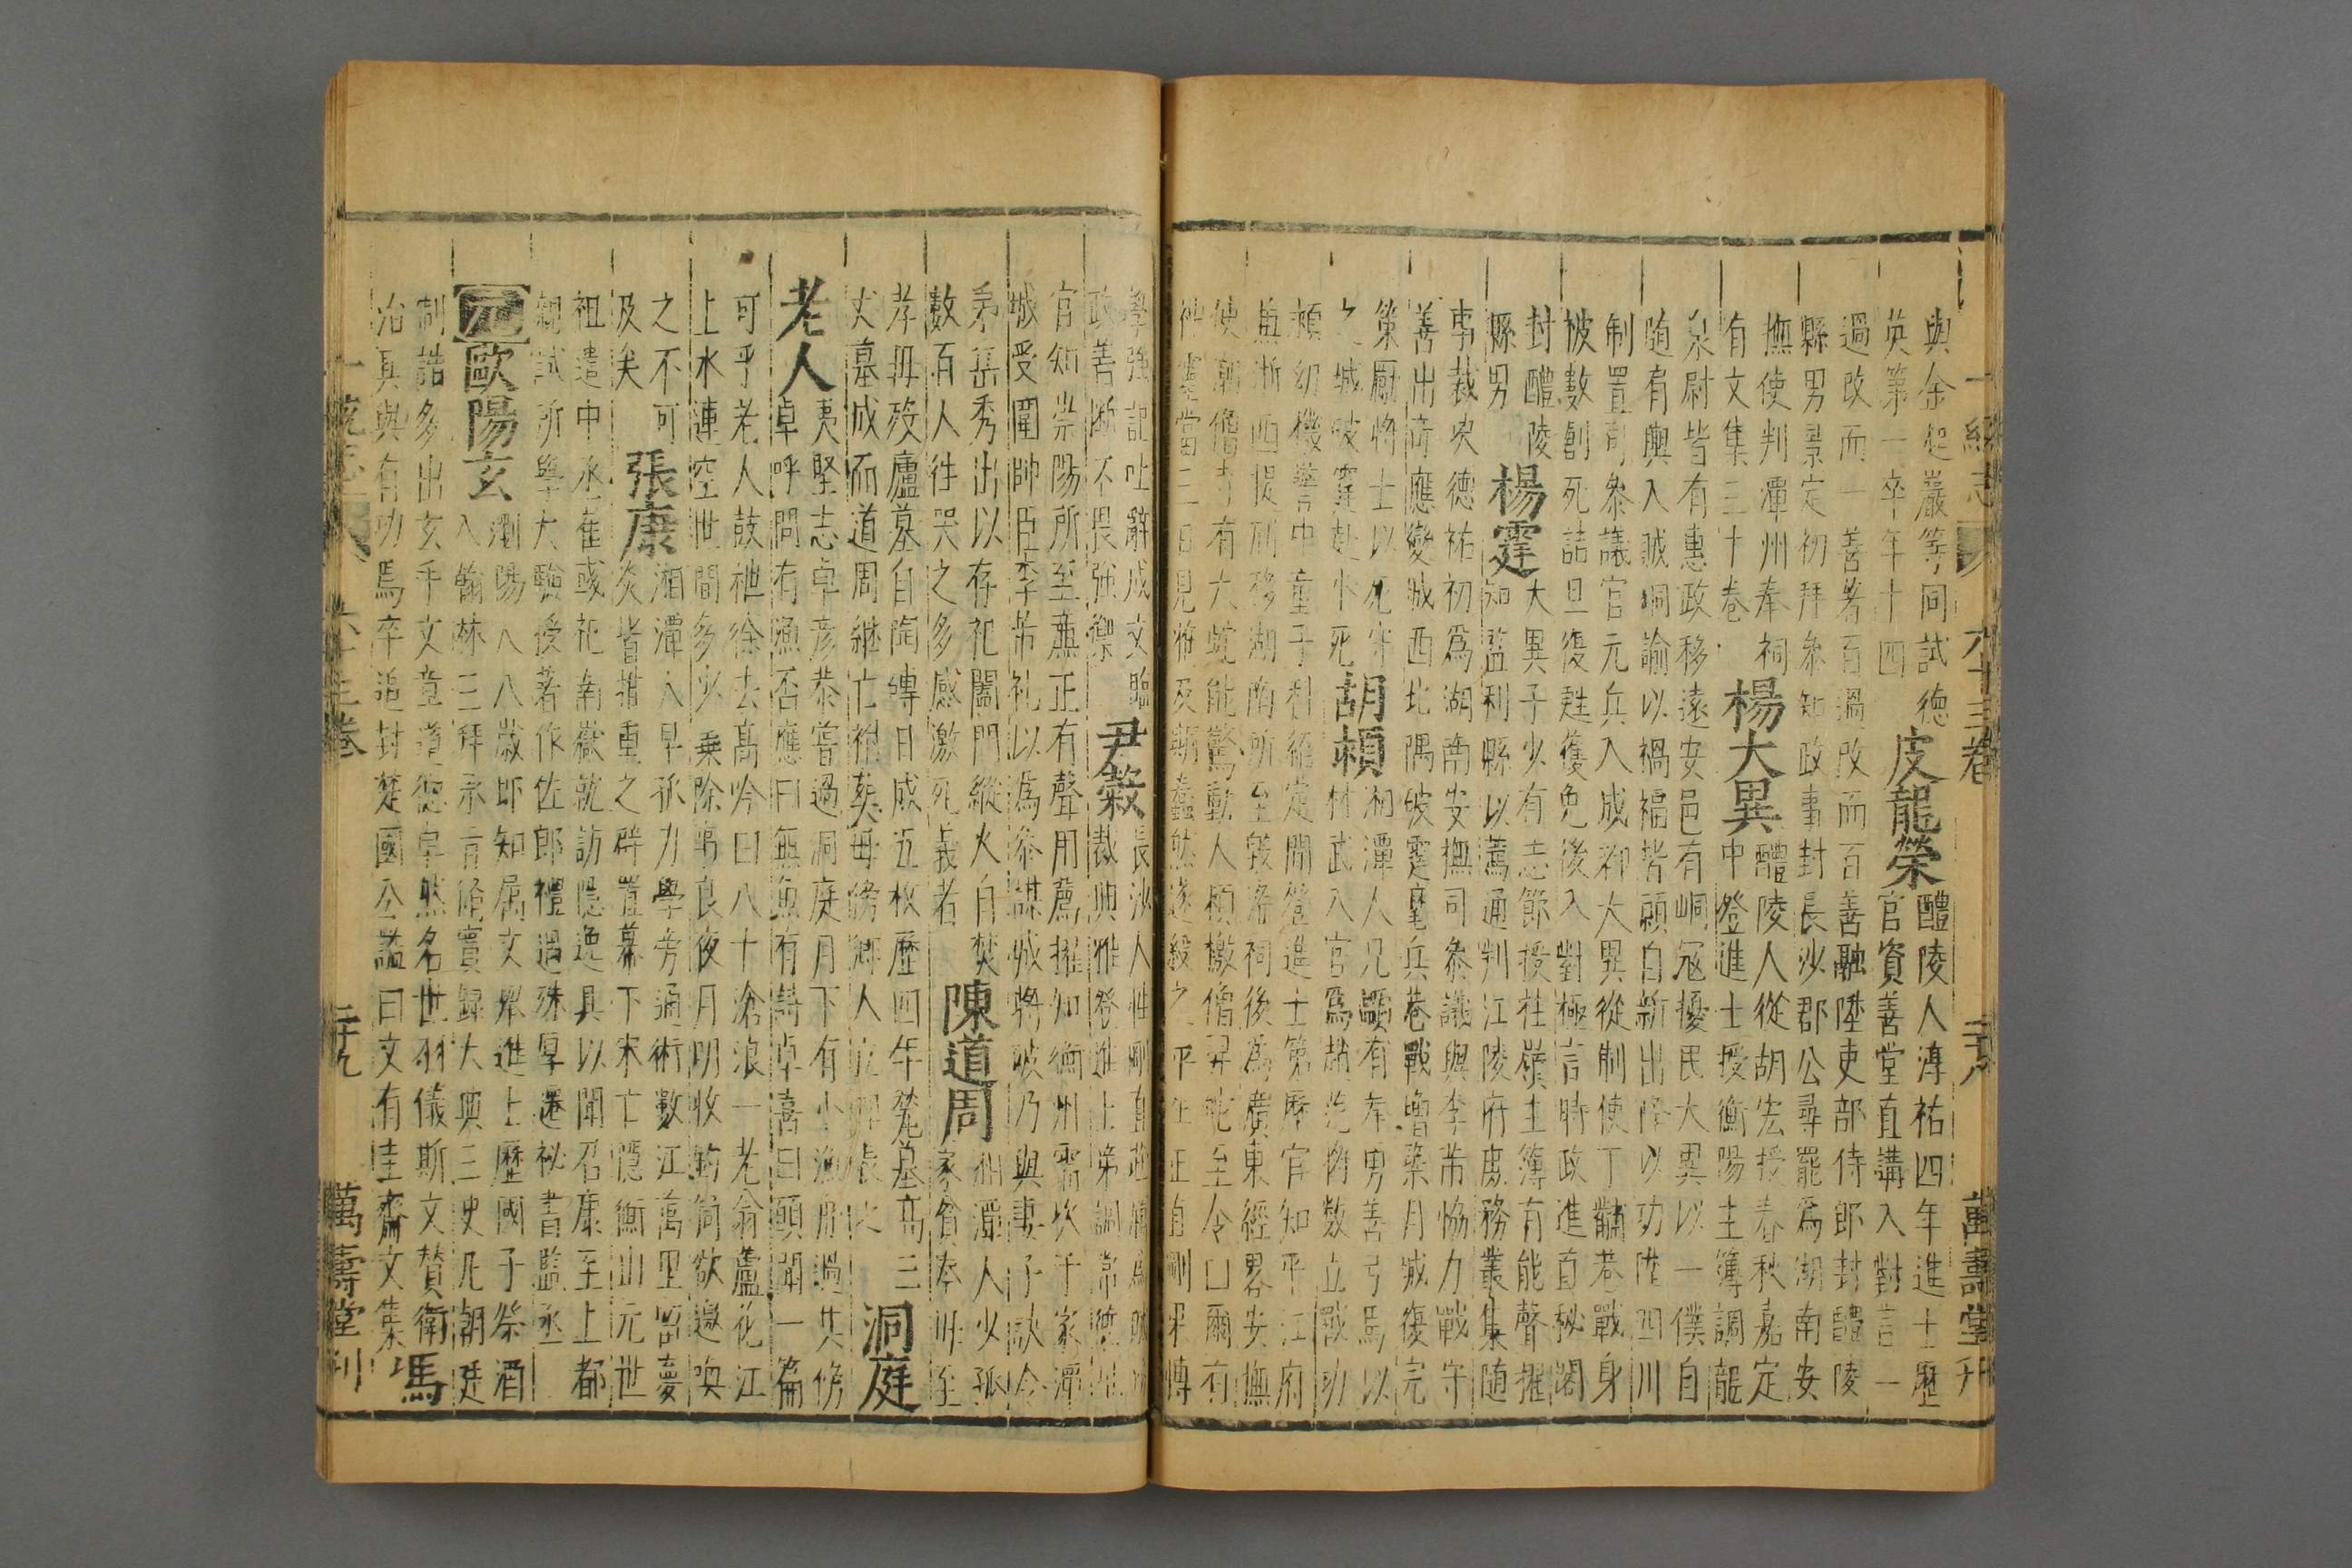 一統志 六十三卷 二十八 萬壽堂刋
與金起巖等同試德
英第一卒年十四
皮龍榮
醴陵人淳祐四年進士歷
官資善堂直講入對言一
過改而一善著百過改而百善融陞吏部侍郎封醴陵
縣男景定初拜參知政事封長沙郡公尋罷爲湖南安
撫使判潭州奉祠
有文集三十卷
楊大異
醴陵人從胡宏授春秋嘉定
中登進士授衡陽主簿調龍
泉尉皆有惠政移遠安邑有峒冦擾民大異以一僕自
随有輿入賊峒諭以禍福皆願自新出降以功陞四川
制置司參議官元兵入成都大異從制使丁黼巷戰身
被數創死詰旦復甦獲免後入對極言時政進直秘閣
封醴陵
縣男
楊霆
大異子少有志節授桂嶺主簿有能聲擢
知監利縣以薦通判江陵府庶務叢集随
事裁决德祐初爲湖南安撫司參議與李芾恊力戰守
善出奇應變城西北隅破霆麾兵巷戰增築月城復完
策厲將士以死守
城破霆赴水死
胡頴
湘潭人兄顯有
材武入官爲趙范將數立戰功
頴幼機警中童子科紹定間登進士第歷官知平江府
兼浙西提刑移湖南所至毀淫祠後爲廣東經畧安撫
使潮僧寺有大蛇能驚動人頴檄僧舁蛇至令曰爾有
神靈當三日見
學強記吐辭成文臨
政善断不畏強禦
尹穀
長沙人性剛直
官知崇陽所至亷正有聲用薦擢知衡州需次于家潭
城受圍帥臣李芾礼以爲參謀城將破乃與妻子訣令
弟岳秀出以存祀闔門縱火自焚
數百人往哭之多感激死義者
陳道周
湘潭人少孤
家貧奉毋至
孝毋殁廬墓自陶磚日成五枚歷四年甃墓高三
丈墓成而道周繼亡
洞庭
老人
夷堅志卓彦恭嘗過洞庭月下有小漁舟過其傍
卓呼問有漁否應曰無魚有詩卓喜曰願聞一篇
可乎老人鼓枻徐去高吟曰八十滄浪一老翁蘆花江
上水連空世間多少乗除事良夜月明收釣筒欲邀與
之不可
及矣
張康
湘潭人早孤力學旁通術數江萬里留夢
炎皆推重之辟置幕下宋亡隱衡山元世
祖遣中丞崔彧祀南嶽就訪隱逸具以聞召康至上都
親試所學大驗授著作佐郎禮遇殊厚遷祕書監丞
元
歐陽玄
瀏陽人八歲即知属文舉進士歷國子祭酒
入翰林三拜承旨脩實録大典三史凡朝廷
制誥多出玄手文章道德卓然名世羽儀斯文賛衛
治具與有功焉卒追封楚國公謚曰文有圭齋文集
馬
一統志 六十三卷 二十九 萬壽堂刋